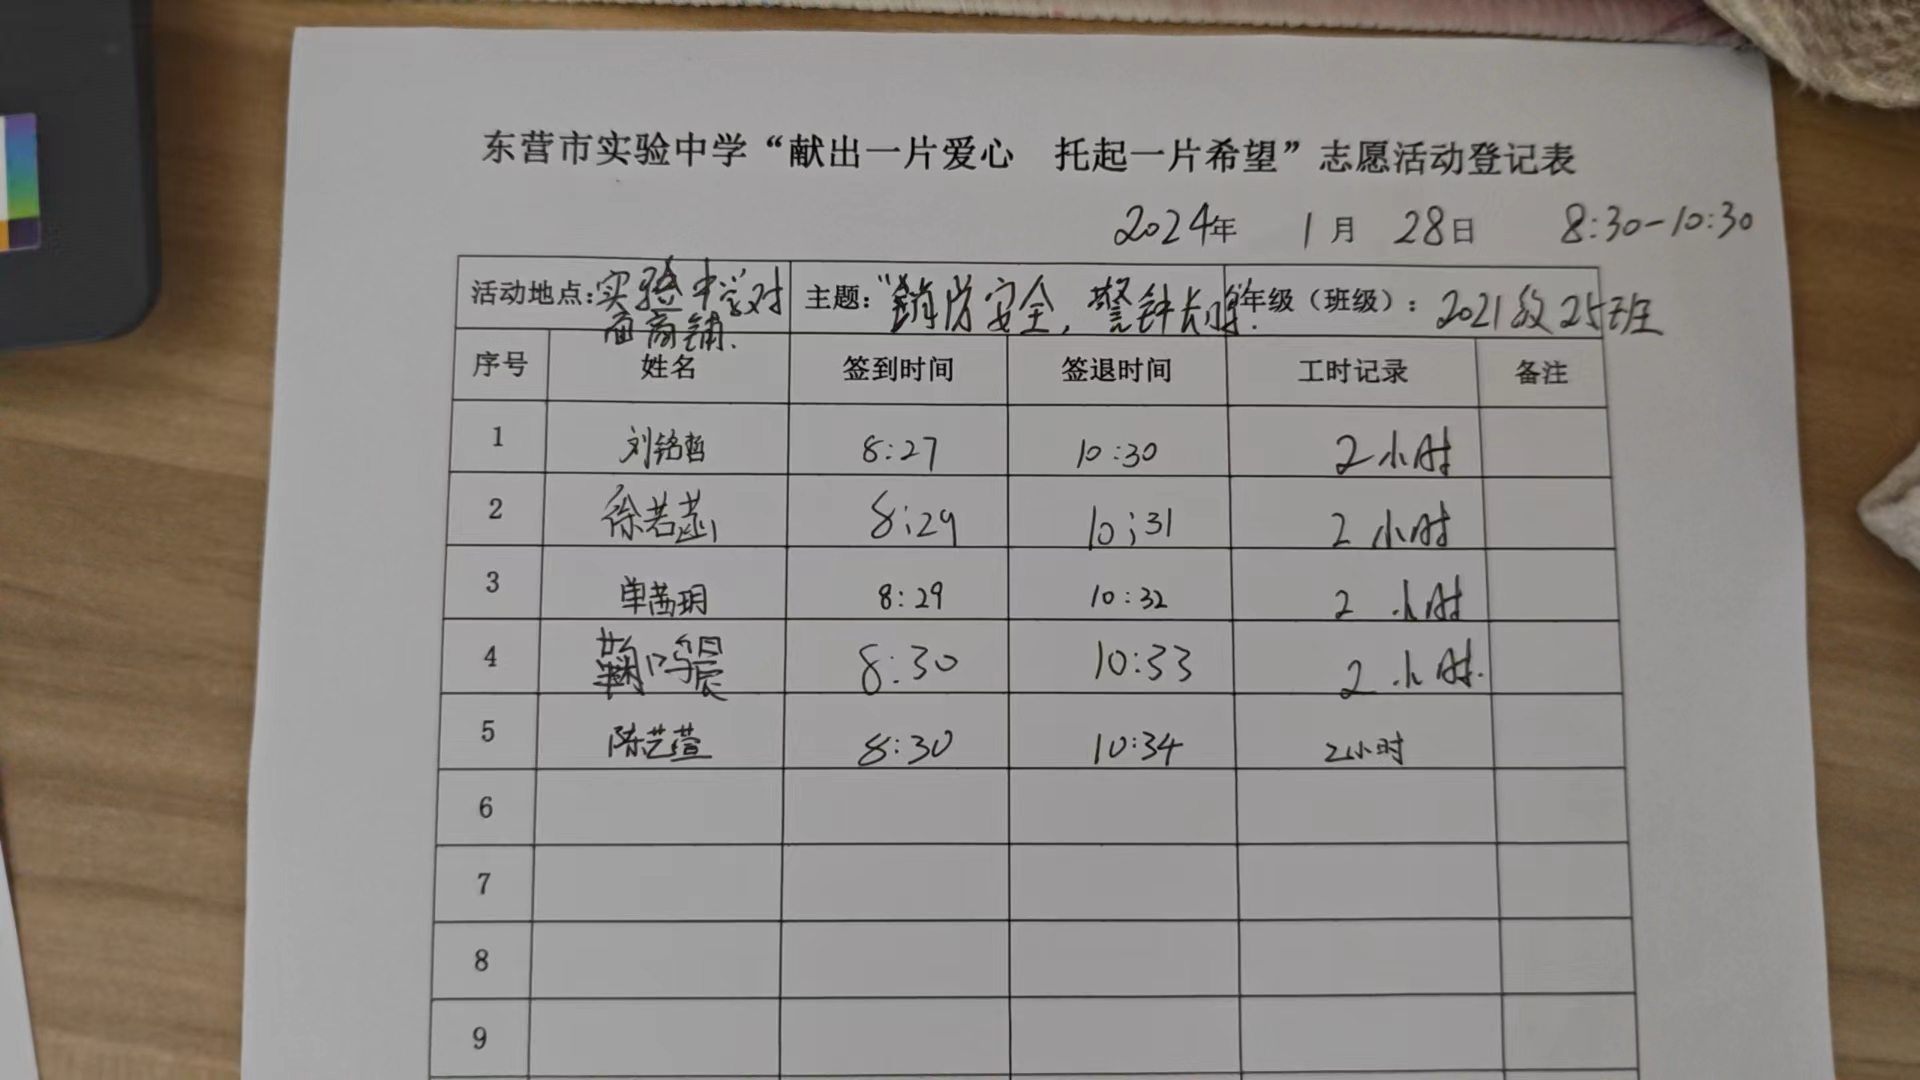 东营市实验中学“献出一片爱心　托起一片希望”志愿活动登记表
2024年 1月 28日 8:30-10:30
活动地点：实验中学对面商铺. 主题：“消防安全，警钟长鸣. 年级（班级）：2021级25班
序号 姓名 签到时间 签退时间 工时记录 备注
1 刘铭哲 8:27 10:30 2小时
2 徐若菡 8:29 10:31 2小时
3 单茜玥 8:29 10:32 2小时
4 鞠鸣晨 8:30 10:33 2小时.
5 陈艺萱 8:30 10:34 2小时
6
7
8
9